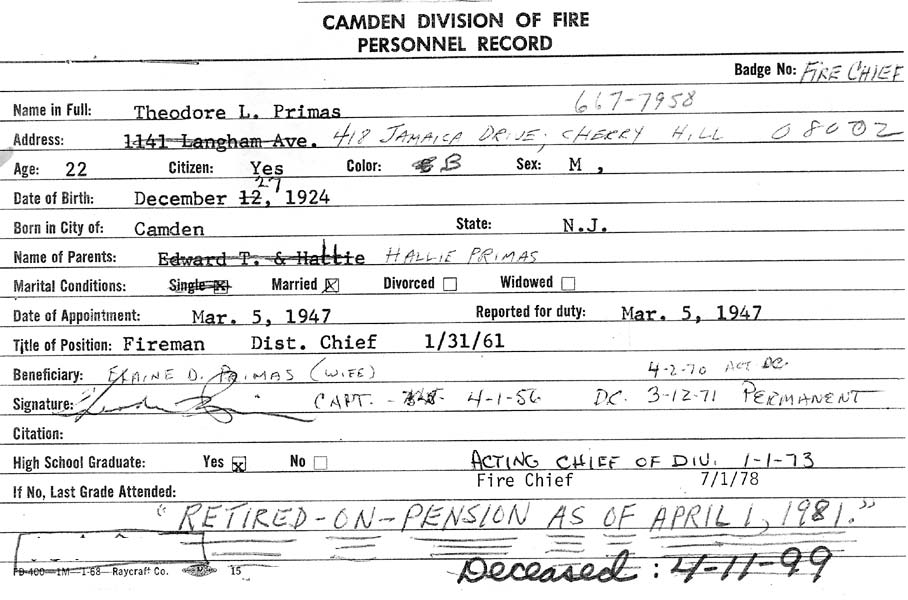 CAMDEN DIVISION OF FIRE
PERSONNEL RECORD
Badge No: FIRE CHIEF
Name in Full: Theodore L. Primas 667-7958
Address: 1141 Langham Ave. 418 JAMAICA DRIVE, CHERRY HILL 08002
Age: 22 Citizen: Yes Color: B Sex: M ,
27
Date of Birth: December 12, 1924
Born in City of: Camden State: N.J.
Name of Parents: Edward T. & Hattie HALLIE PRIMAS
Marital Conditions: Single ☒ Married ☒ Divorced ☐ Widowed ☐
Date of Appointment: Mar. 5, 1947 Reported for duty: Mar. 5, 1947
Title of Position: Fireman Dist. Chief 1/31/61
Beneficiary: ELAINE D. PRIMAS (WIFE) 4-2-70 ACT DC.
Signature: CAPT. - 4-1-56 DC. 3-12-71 PERMANENT
Citation:
High School Graduate: Yes ☒ No ☐ ACTING CHIEF OF DIV. 1-1-73
Fire Chief 7/1/78
If No, Last Grade Attended:
"RETIRED-ON-PENSION AS OF APRIL 1, 1981."
FD-400-1M-1-68 Raycraft Co. 15
Deceased: 4-11-99